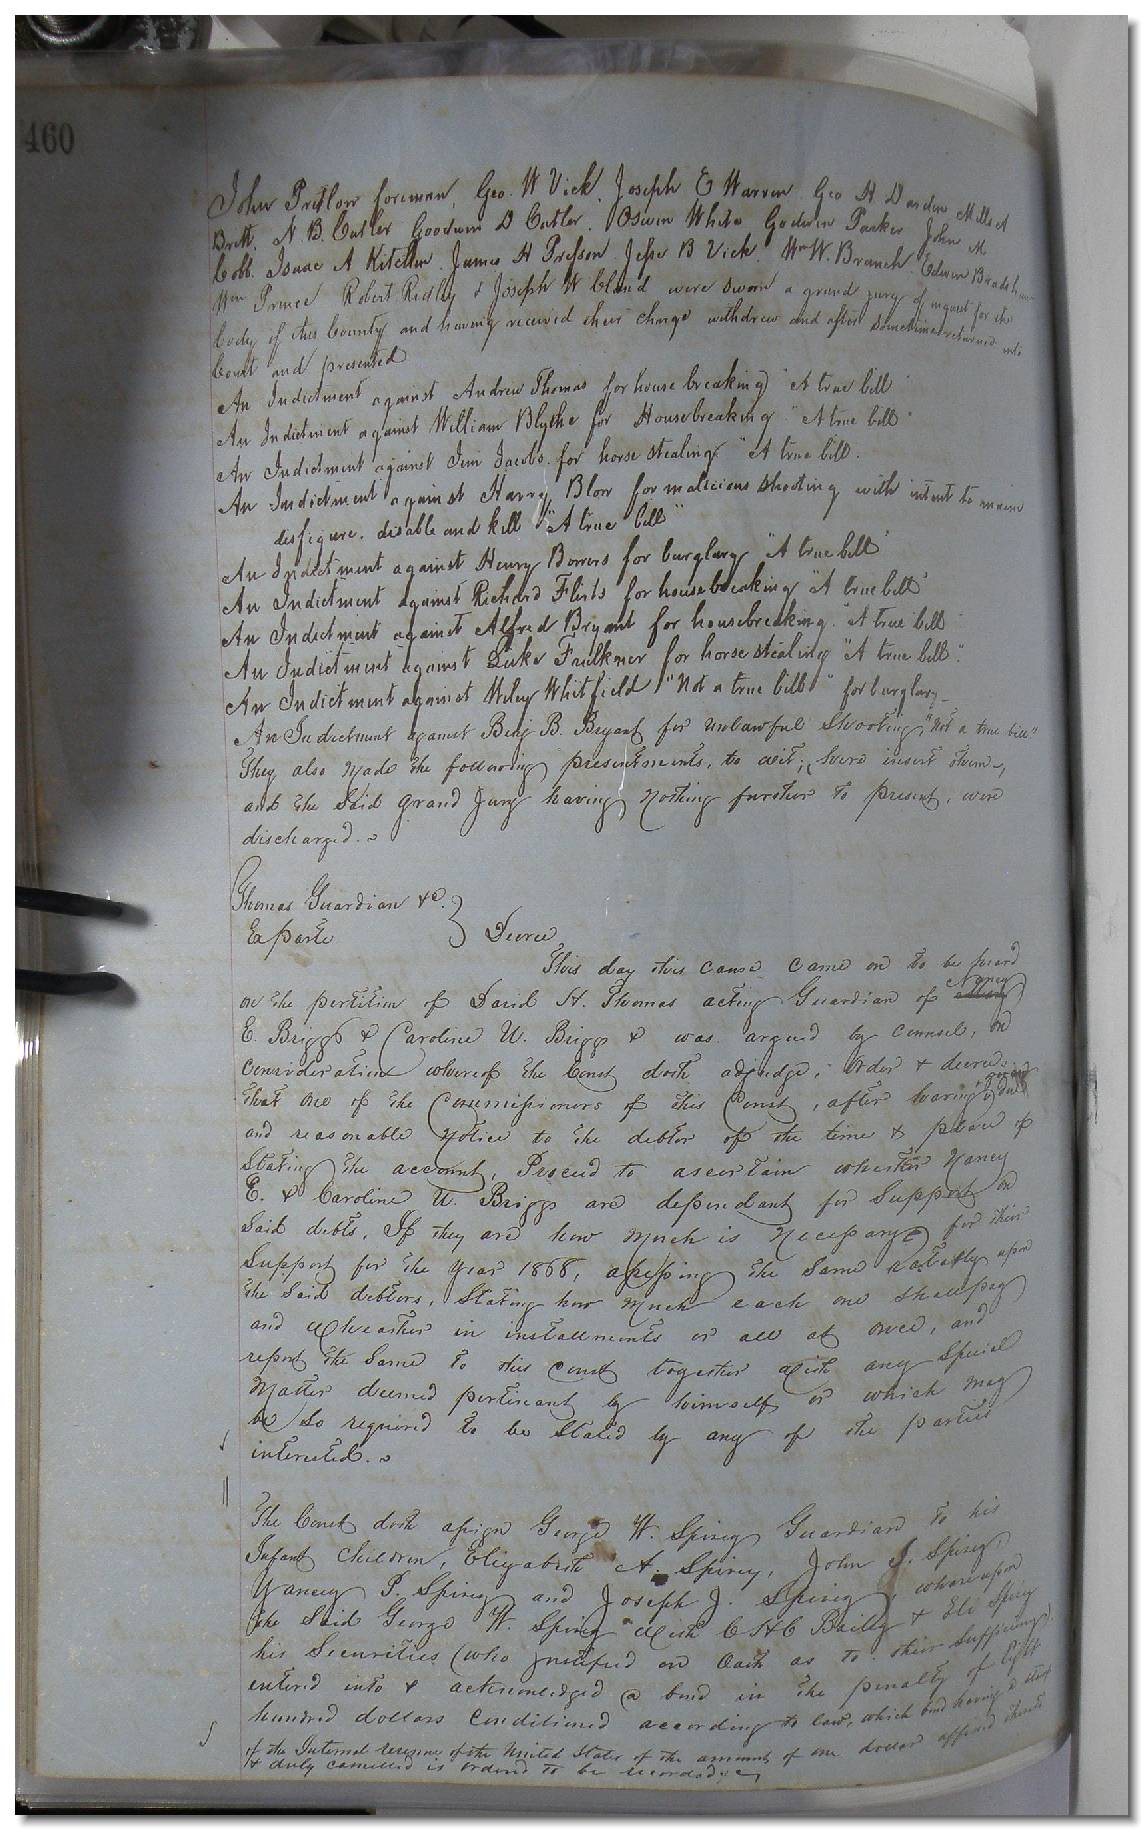 460
John Pretlow foreman, Geo. W Vick, Joseph E Warren Geo H Darden Mills A
Britt, N. B. Cutler Goodwin D Cutler, Oswin White Godwin Parker John M
Cobb. Isaac A Kitchen. James H Presson Jesse B Vick. Wm W. Branch Edwin Bradshaw
Wm Prince Robert Redly & Joseph W bland were sworn a grand jury of inquest for the
body of this County and having received their charge withdrew and after sometime returned into
Court and presented
An Indictment against Andrew Thomas for house breaking "A true bill"
An Indictment against William Blythe for Housebreaking "A true bill"
An Indictment against Jim Jacobs for horse stealing "A true bill.
An Indictment against Harry Blow for malicious shooting with intent to maim
disfigure. disable and kill "A true bill"
An Indictment against Henry Bowers for burglary "A true bill"
An Indictment against Richard Flirts for housebreaking "A true bill"
An Indictment against Alfred Bryant for housebreaking. "A true bill
An Indictment against Luke Faulkner for horse stealing "A true bill".
An Indictment against Wiley Whitfield "Not a true bill" for burglary_
An Indictment against Benj B. Bryant for unlawful shooting, "Not a true bill"
They also made the following presentments, to wit; (here insert them),
and the said grand Jury having nothing further to present, were
discharged.
Thomas Guardian &c.
Exparte } Decree
This day this cause came on to be heard
on the petition of David H. Thomas acting Guardian of Nancy
E. Briggs & Caroline W. Briggs & was argued by counsel, on
consideration whereof the Court doth adjudge, order & decree
that one of the Commissioners of this Court, after having given due
and reasonable notice to the debtor of the time & place of
stating the account, Proceed to ascertain whether Nancy
E. & Caroline W. Briggs are dependant for support on
said debts, If they are how much is necessary for their
support for the year 1868, assessing the same ratably upon
the said debtors, stating how much each one shall pay
and wheather in installments or all at once, and
report the same to this court together with any special
matter deemed pertinent by himself or which may
be so required to be stated by any of the parties
interested.
The Court doth assign George W. Spivey Guardian to his
Infant children, Elizabeth A. Spivey, John J. Spivey,
Yancey P. Spivey and Joseph J. Spivey, whereupon
the said George W. Spivey with C H C Bailey & Eli Spivey
his Securities (who justified on Oath as to their sufficiency)
entered into & acknowledged a bond in the penalty of Eight
hundred dollars conditioned according to law, which bond having a stamp
of the Internal revenue of the United States of the amount of one dollar affixed thereto
& duly cancelled is ordered to be recorded.